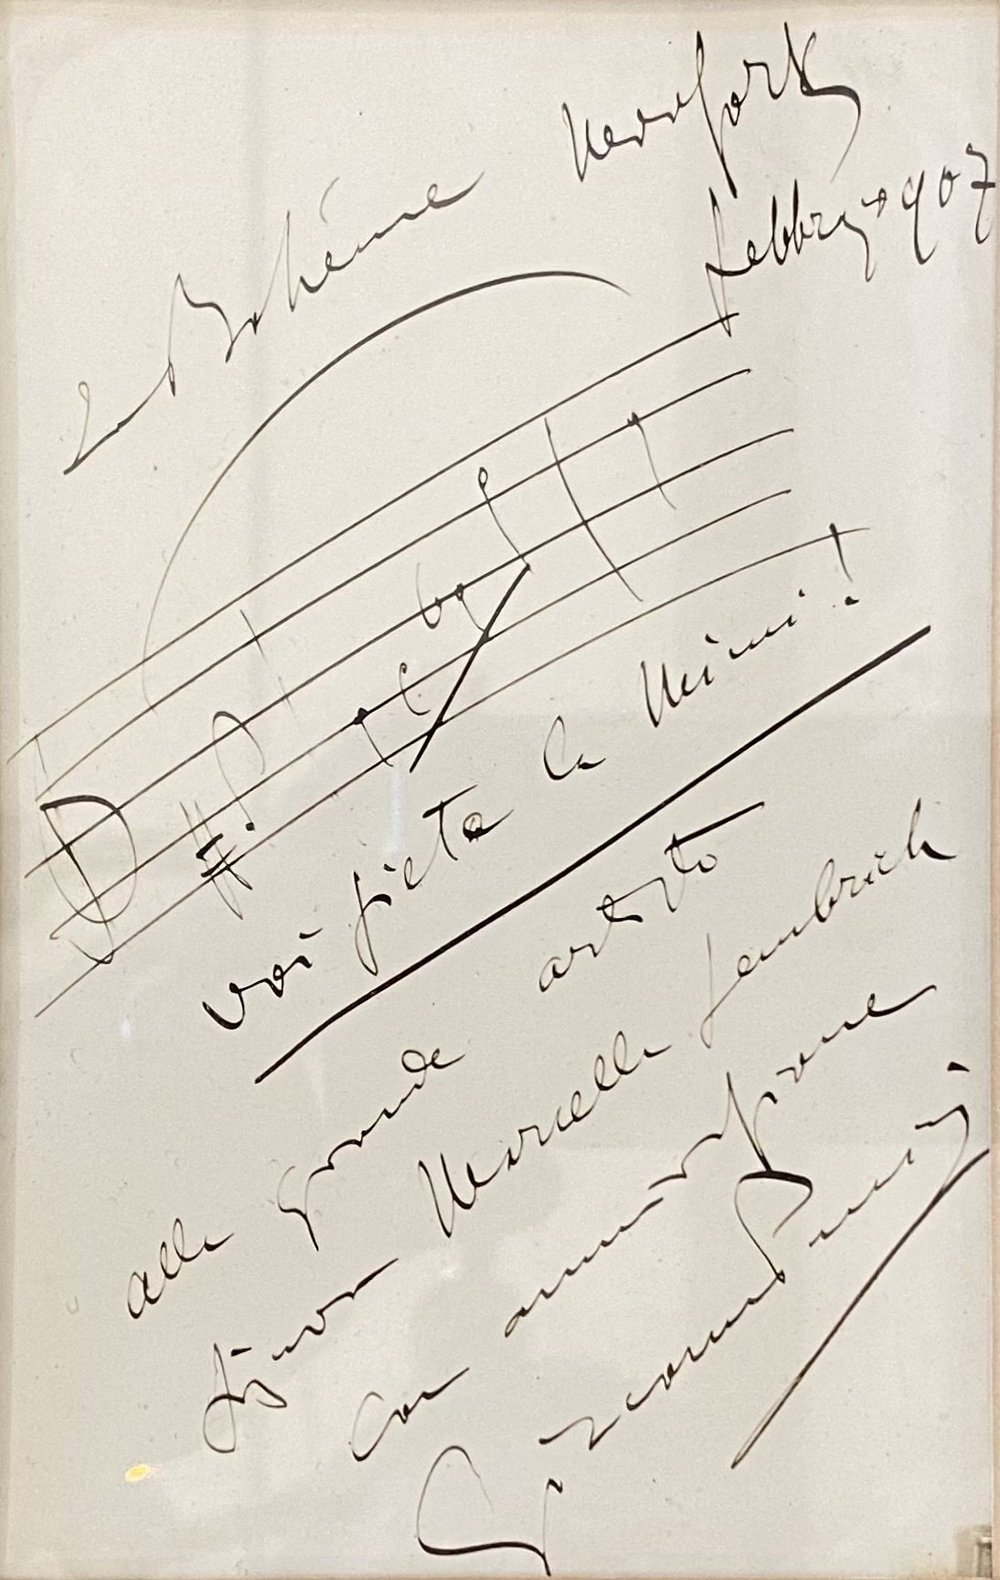 La Bohême
New York
febbraio 907
voi siete la Mimi!
alla grande artista
Signora Marcella Sembrich
con ammirazione
Giacomo Puccini